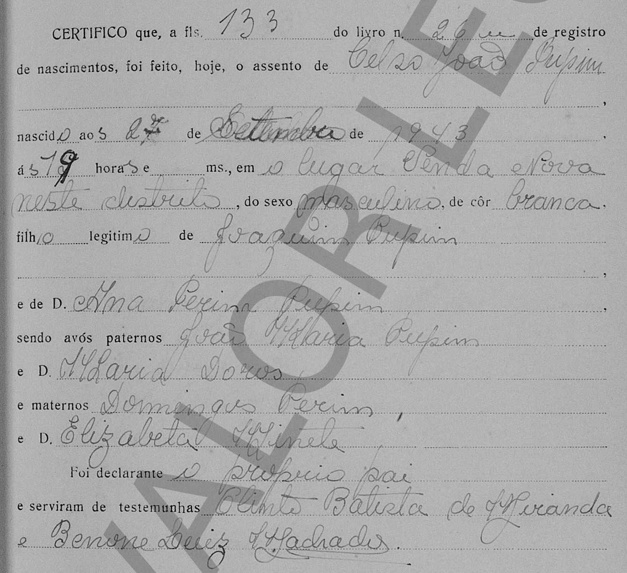 CERTIFICO que, a fls. 133 do livro n. 26 de registro
de nascimentos, foi feito, hoje, o assento de Celso João Pupim
nascido aos 27 de Setembro de 1943
ás 19 horas e ms., em o lugar Venda Nova
neste distrito, do sexo masculino, de côr branca.
filho legitimo de Joaquim Pupim
e de D. Ana Perim Pupim
sendo avós paternos João Maria Pupim
e D. Maria Doros
e maternos Domingos Perim,
e D. Elizabeta Minete
Foi declarante o proprio pai
e serviram de testemunhas Olinto Batista de Miranda
e Benone Luiz Machado.
VALOR LEG